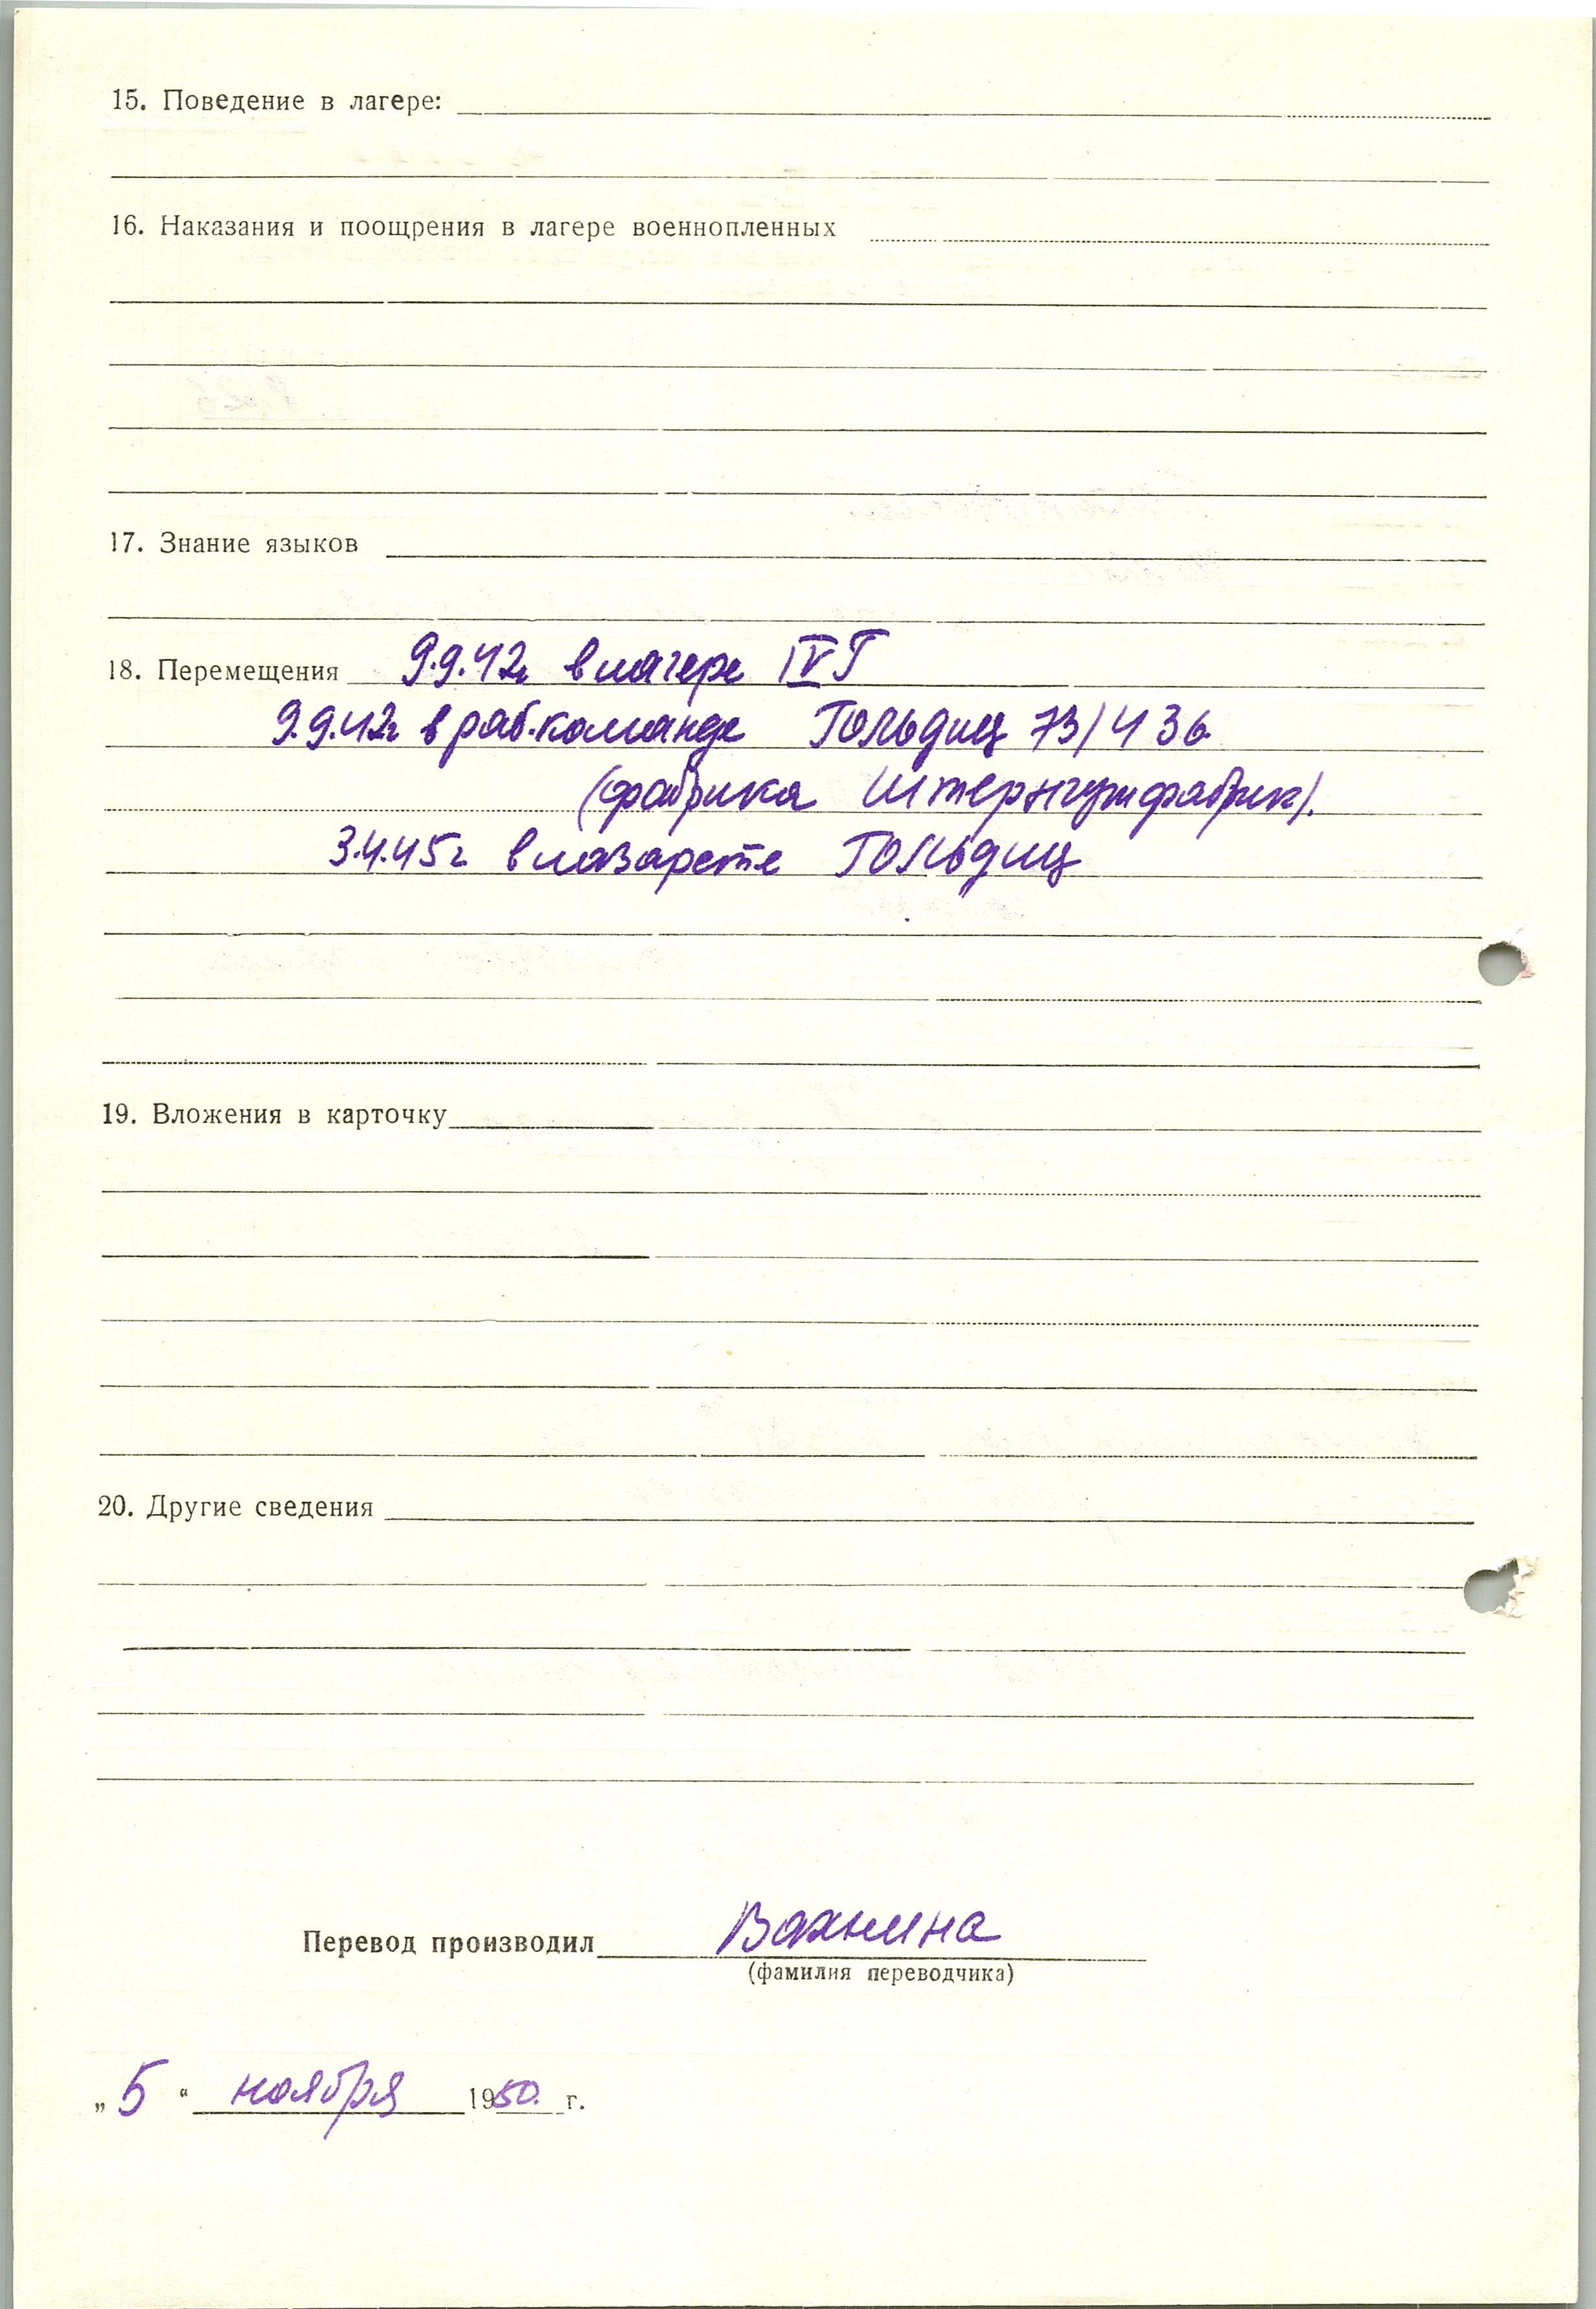 15. Поведение в лагере:
16. Наказания и поощрения в лагере военнопленных
17. Знание языков
18. Перемещения 9.9.42г в лагере IV Г
9.9.42г в раб.команде Гольдиц 73/436
(фабрика Штернгутфабрик).
3.4.45г в лазарете Гольдиц
19. Вложения в карточку
20. Другие сведения
Перевод производил Вахнина
(фамилия переводчика)
„5“ ноября 1950. г.